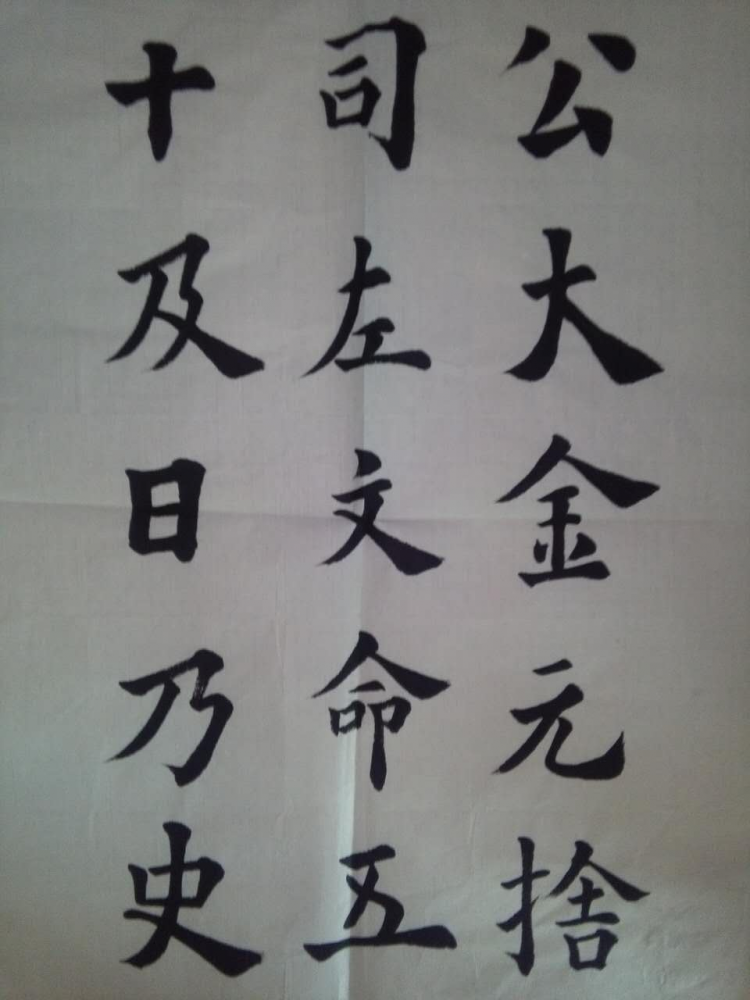 公大金元捨
司左文命五
十及日乃史